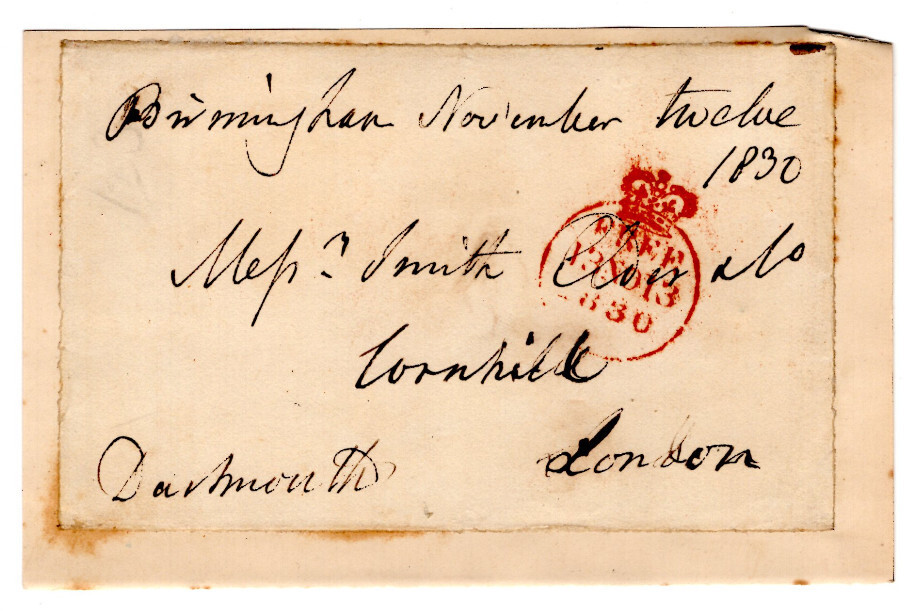 Birmingham November twelve
1830
Messrs Smith Elder & Co
Cornhill
London
Dartmouth
FREE
13 NO 13
1830